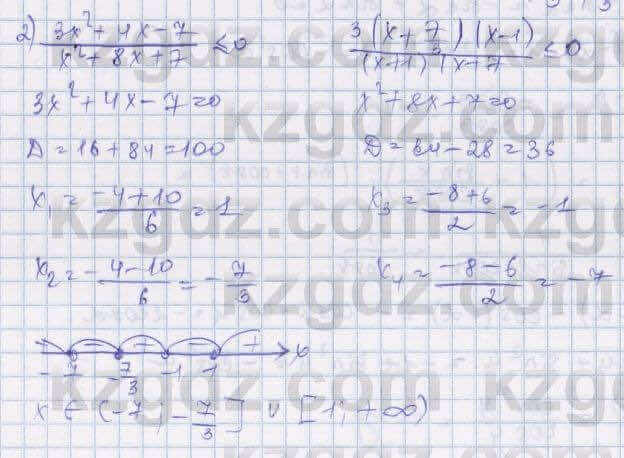 2) (3x²+4x-7)/(x²+8x+7) ≤0   3(x+7/3)(x-1)/(x+1)(x+7 ≤0
3x²+4x-7=0   x²+8x+7=0
D=16+84=100   D=64-28=36
x₁=(-4+10)/6=1   x₃=(-8+6)/2=-1
x₂=-(4-10)/6=-7/3   x₄=(-8-6)/2=-7
+ - + - + x
-7 -7/3 -1 1
x∈(-7;-7/3]∪[1;+∞)
kzgdz.com